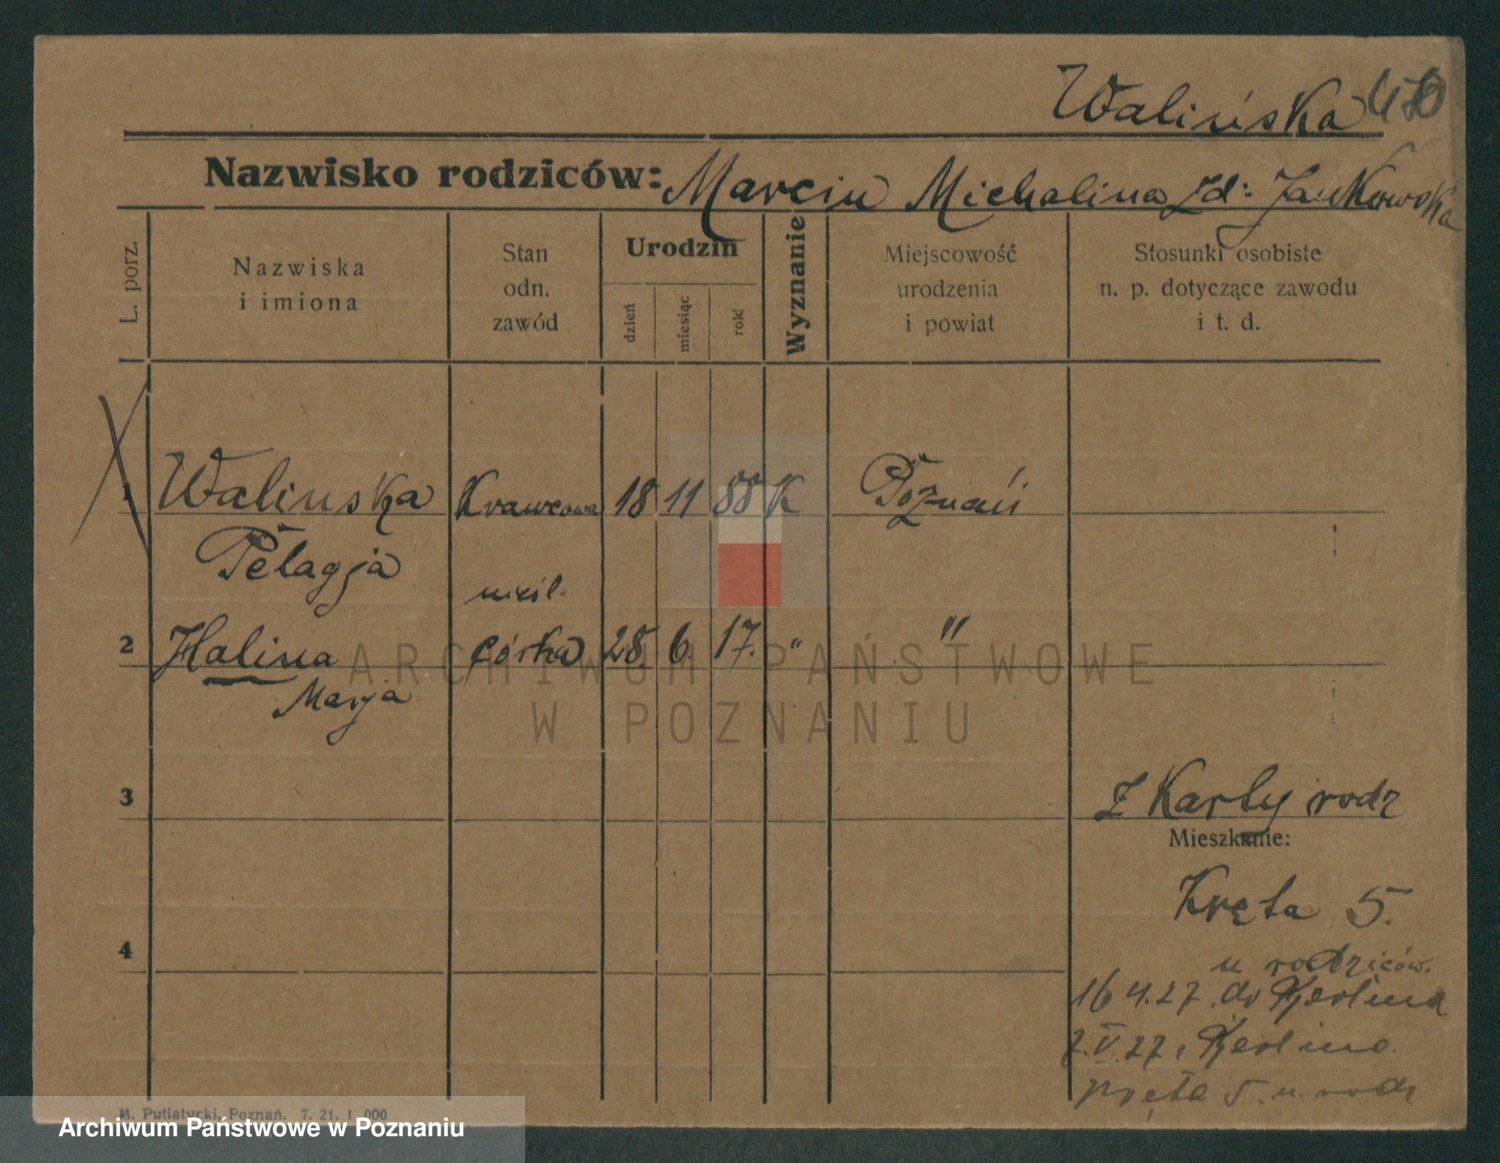 Walińska
Nazwisko rodziców: Marcin Michalina zd: Jankowska
L. porz.
Nazwiska
i imiona
Stan
odn.
zawód
Urodzin
dzień
miesiąc
rok
Wyznanie
Miejscowość
urodzenia
i powiat
Stosunki osobiste
n. p. dotyczące zawodu
i t. d.
1 Walinska Krawcowa 18 11 88 K Poznań
Pelagja
nieśl.
2 Halina córka 28. 6. 17. " "
Marja
ARCHIWUM PAŃSTWOWE
W POZNANIU
3 z Karty rodz
Mieszkanie:
Kręta 5.
4
u rodziców.
16 4. 27 do Berlina
7. V. 27 z Berlina
Kręta 5. u rodz
M. Putiatycki, Poznań. 7. 21. 1 000
Archiwum Państwowe w Poznaniu